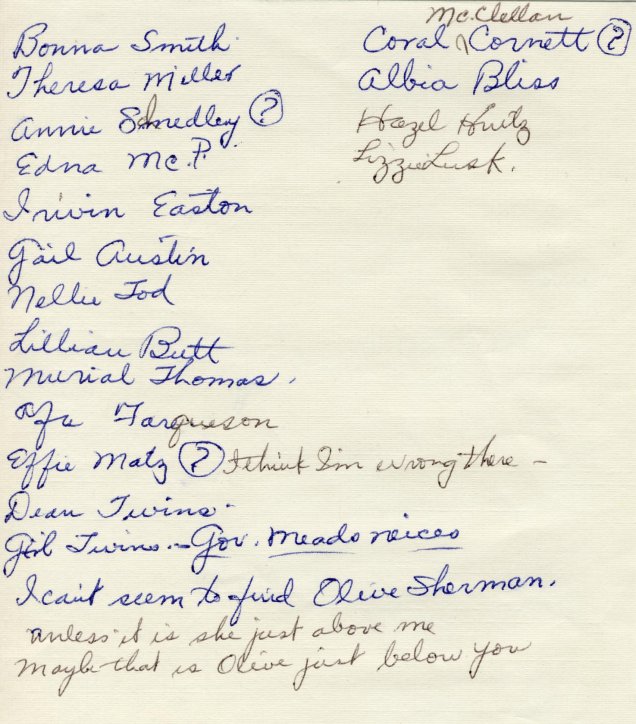 Bonna Smith
Theresa Miller
Annie Smedley ?
Edna Mc. P.
Irwin Easton
Gail Austin
Nellie Tod
Lillian Butt
Murial Thomas.
Farqueson
Effie Matz ? I think I'm wrong there -
Dean Twins.
Twins. - Gov. Meads neices
I can't seem to find Olive Sherman.
unless it is she just above me
Maybe that is Olive just below you
Mc.Clellan
Coral Cornett ?
Albia Bliss
Hazel
Lizzie Lusk.